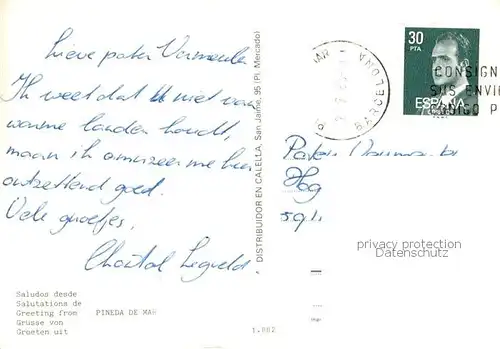 Lieve pater Vermeulen
Ik weet dat U niet van
warme landen houdt,
maar ik amuzeer me hier
ontzettend goed.
Vele groetjes,
Chantal
Saludos desde
Salutations de
Greeting from PINEDA DE MAR
Grusse von
Groeten uit
1.002
* DISTRIBUIDOR EN CALELLA, San Jaime, 95 (Pl. Mercado)
MAR
BARCELONA
30
PTA
ESPAÑA
CONSIGN
SUS ENVI
DIGO P
Pater
privacy protection
Datenschutz